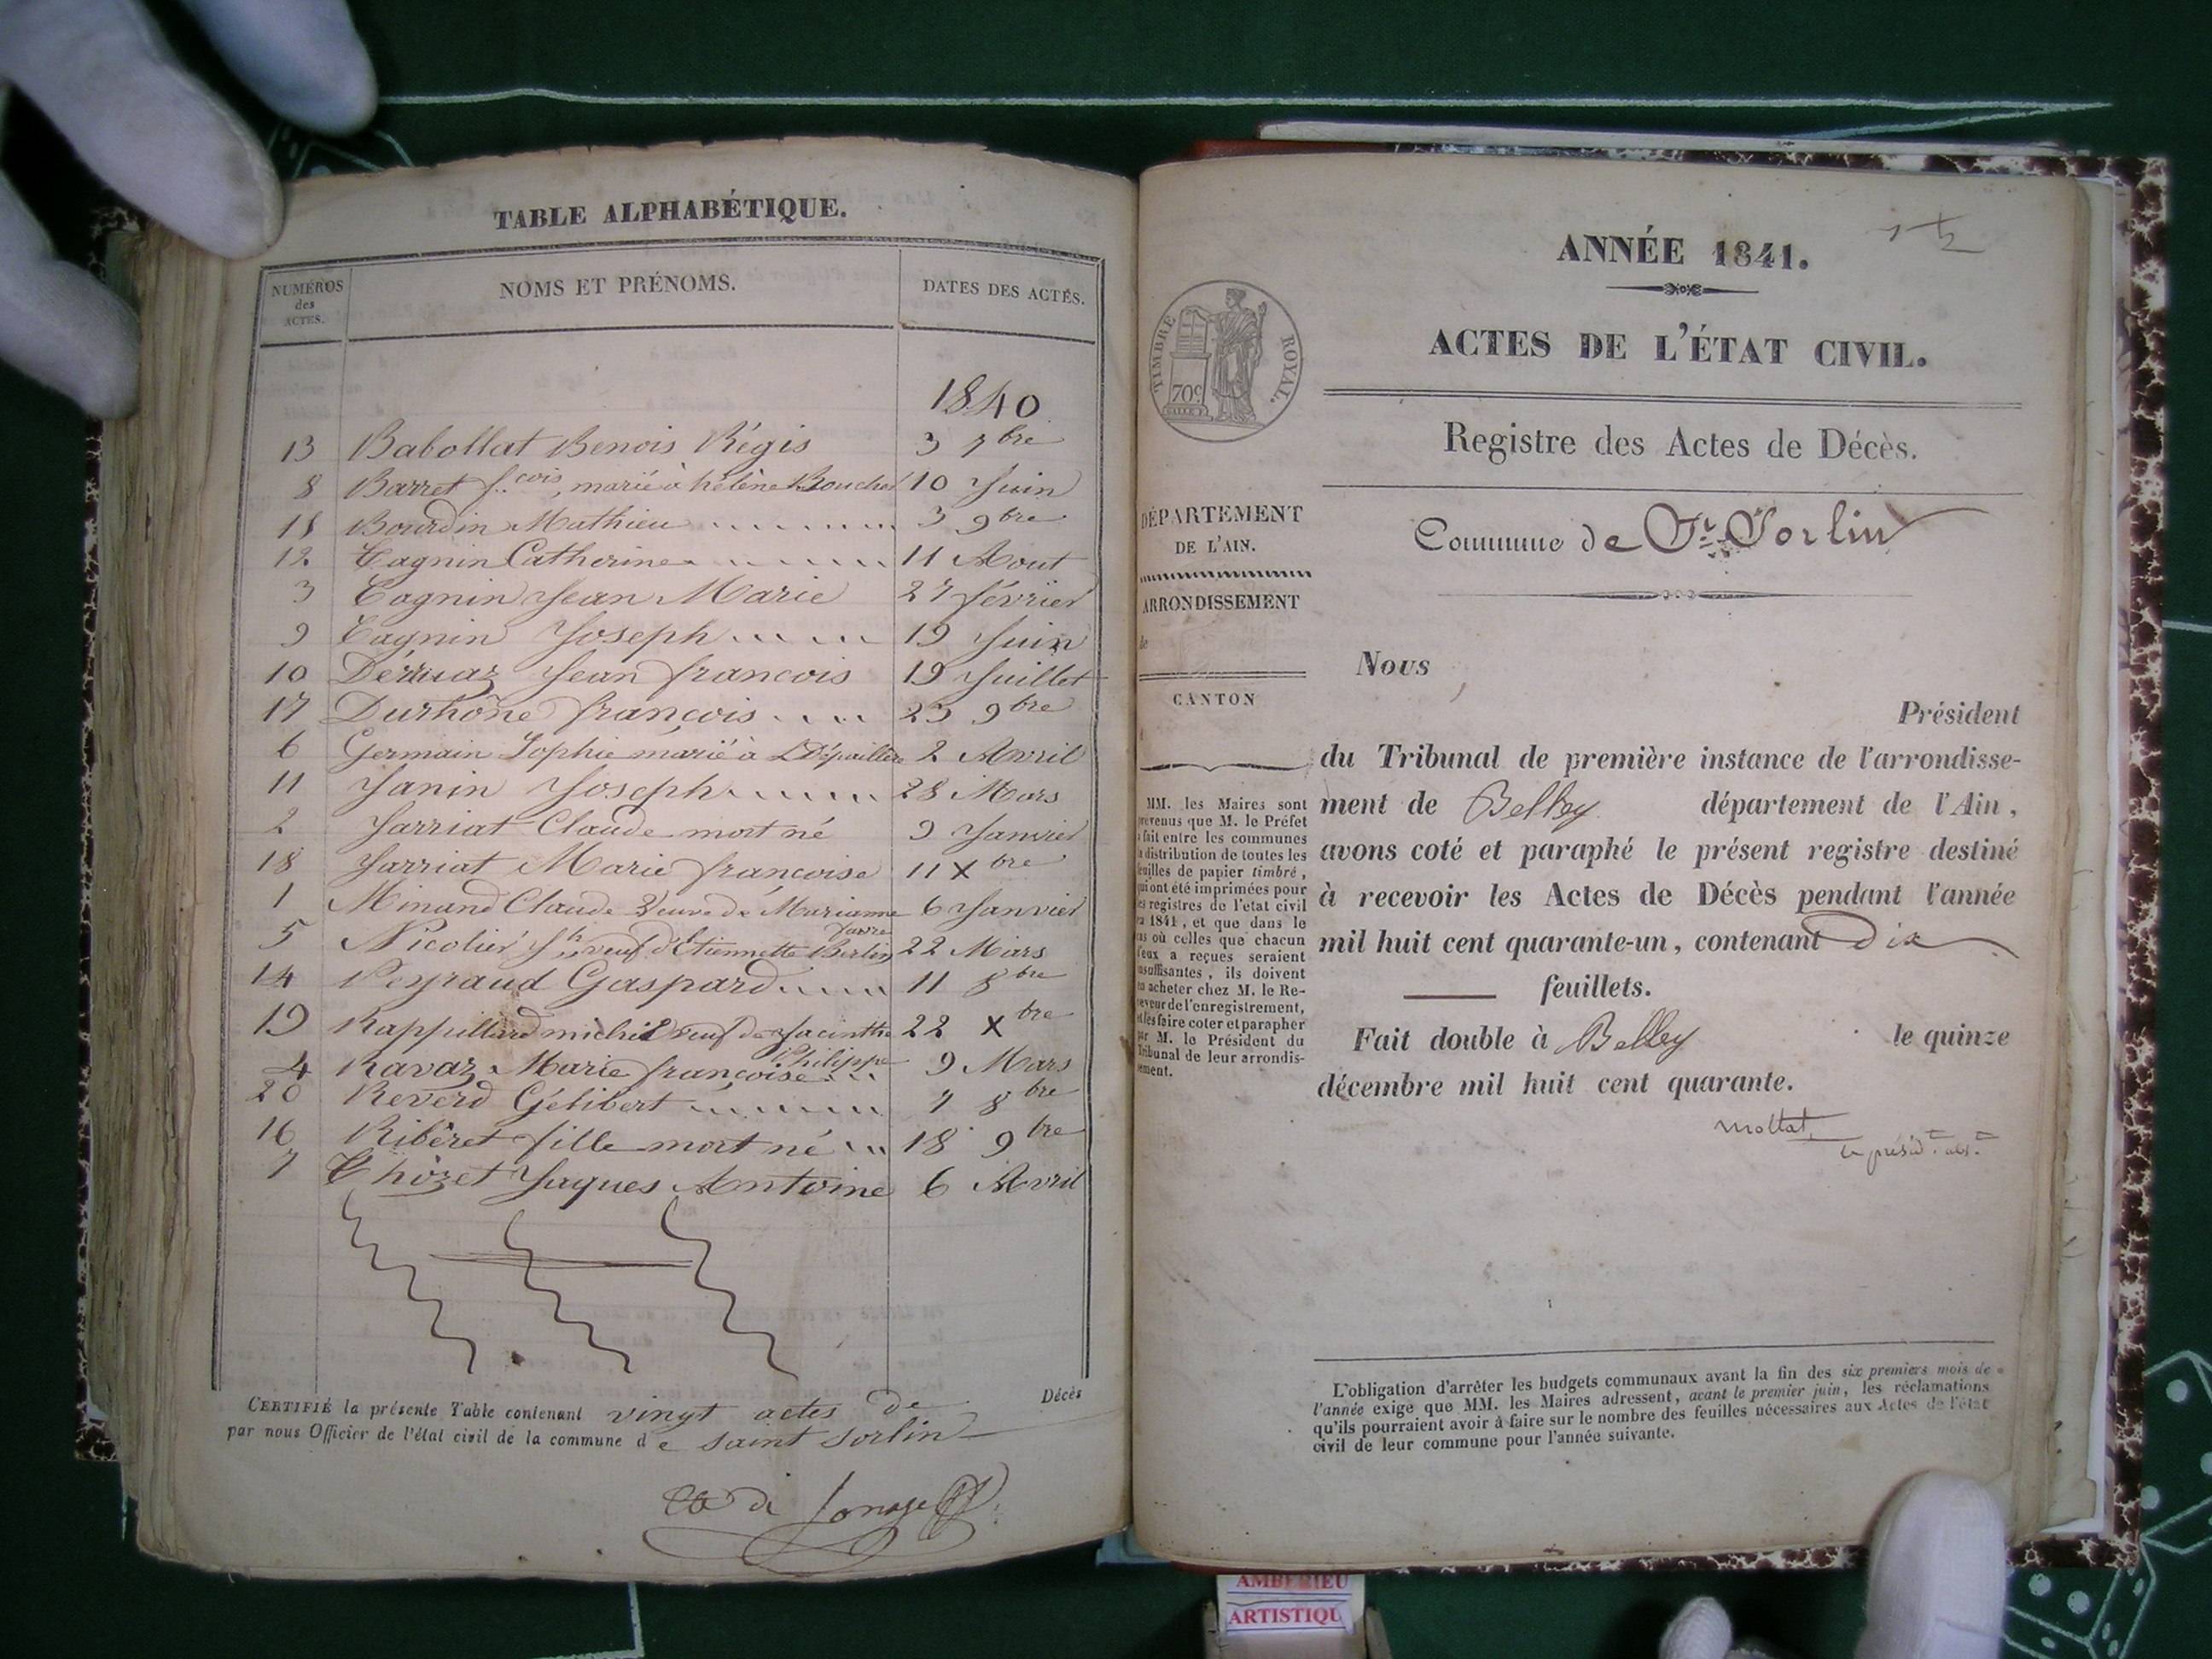 TABLE ALPHABÉTIQUE.
NUMÉROS des ACTES. NOMS ET PRÉNOMS. DATES DES ACTES.
1840
13 Babollat Benois Régis 3 7bre
8 Barret f.cois, marié à hélène Boucher 10 Juin
15 Bourdin Mathieu 3 9bre
12 Cagnin Catherine 11 Aout
3 Cagnin Jean Marie 27 février
9 Cagnin Joseph 19 Juin
10 Dérruaz Jean francois 19 Juillet
17 Durhône françois 23 9bre
6 Germain Sophie marié à L Dépaillère 2 Avril
11 Janin Joseph 28 Mars
2 Jarriat Claude mort né 9 Janvier
18 Jarriat Marie francoise 11 Xbre
1 Minand Claude Veuve de Marianne Favre 6 Janvier
5 Nicolier Jh veuf d'Etiennette Berlin 22 Mars
14 Peyraud Gaspard 11 8bre
19 Rappillard michel veuf de Jacinthe Philippe 22 Xbre
4 Ravaz Marie françoise 9 Mars
20 Reverd Gélibert 7 8bre
16 Ribéret fille mort né 18 9bre
7 Chôzet Jaques Antoine 6 Avril
CERTIFIÉ la présente Table contenant vingt actes de Décès
par nous Officier de l'état civil de la commune de saint sorlin
ANNÉE 1841.
TIMBRE ROYAL.
70c
ACTES DE L'ÉTAT CIVIL.
Registre des Actes de Décès.
DÉPARTEMENT
DE L'AIN.
ARRONDISSEMENT
de
CANTON
MM. les Maires sont
prévenus que M. le Préfet
a fait entre les communes
la distribution de toutes les
feuilles de papier timbré,
qui ont été imprimées pour
les registres de l'etat civil
en 1841, et que dans le
cas où celles que chacun
d'eux a reçues seraient
insuffisantes, ils doivent
en acheter chez M. le Re-
ceveur de l'enregistrement,
et les faire coter et parapher
par M. le Président du
Tribunal de leur arrondis-
sement.
Commune de St Sorlin
Nous
Président
du Tribunal de première instance de l'arrondisse-
ment de Belley département de l'Ain,
avons coté et paraphé le présent registre destiné
à recevoir les Actes de Décès pendant l'année
mil huit cent quarante-un, contenant dix
feuillets.
Fait double à Belley le quinze
décembre mil huit cent quarante.
Mollat
L'obligation d'arrêter les budgets communaux avant la fin des six premiers mois de
l'année exige que MM. les Maires adressent, avant le premier juin, les réclamations
qu'ils pourraient avoir à faire sur le nombre des feuilles nécessaires aux Actes de l'état
civil de leur commune pour l'année suivante.
AMBERIEU
ARTISTIQU